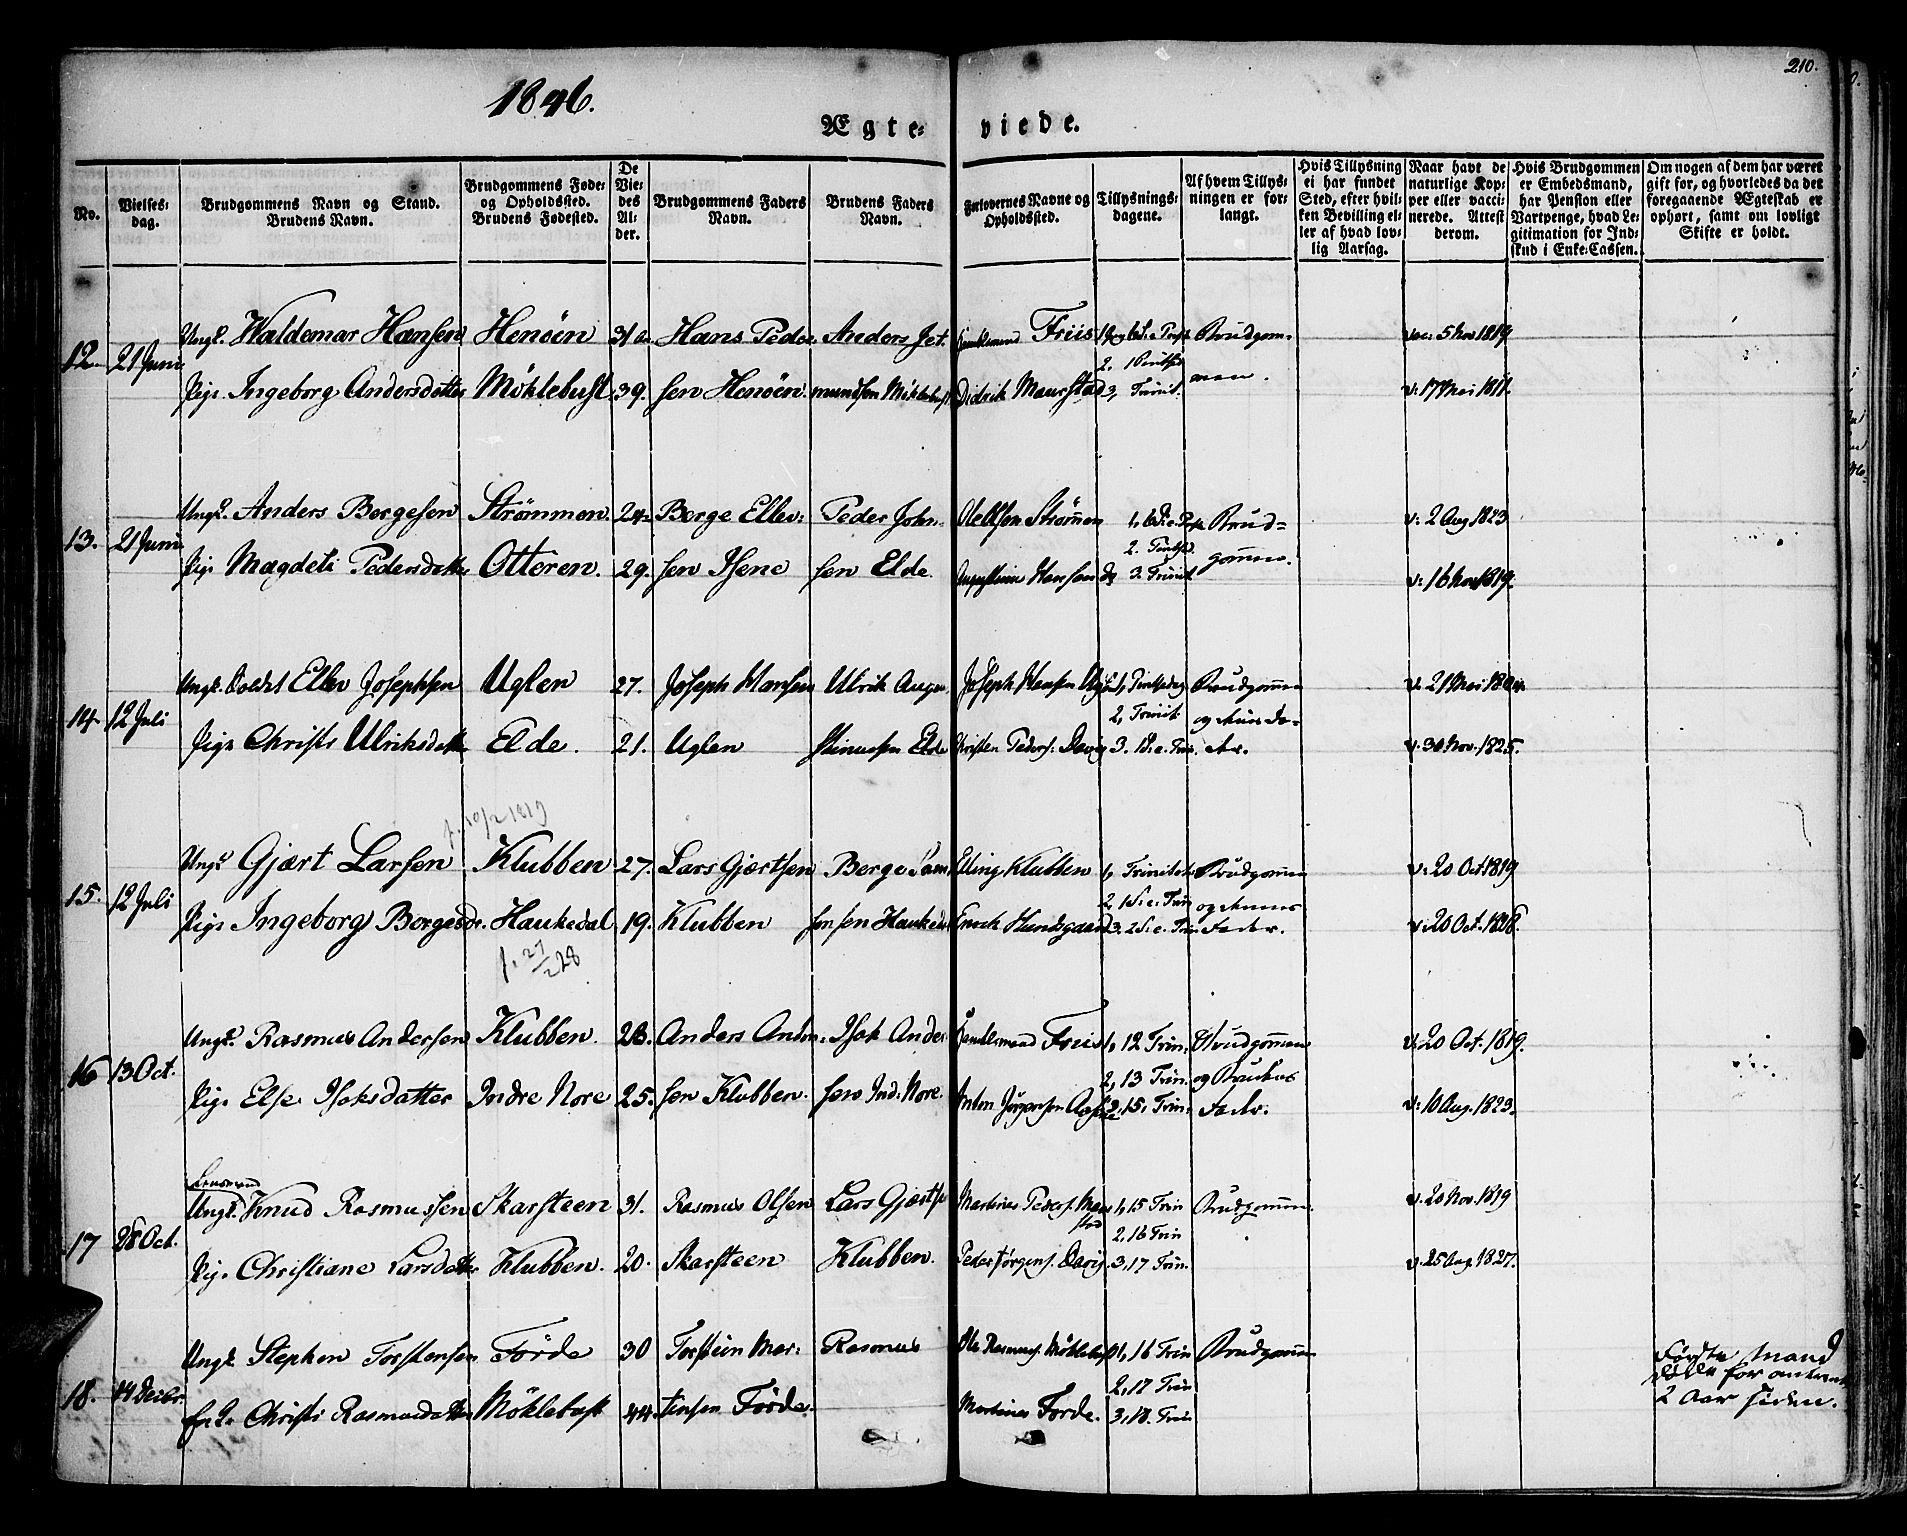 210.
1846.
Ægteviede.
No.
Vielsesdag.
Brudgommens Navn og Stand. Brudens Navn.
Brudgommens Føde- og Opholdssted. Brudens Fødested.
De Viedes Alder.
Brudgommens Faders Navn.
Brudens Faders Navn.
Forlovernes Navne og Opholdssted.
Tillysningsdagene.
Af hvem Tillysningen er forlangt.
Hvis Tillysning ei har fundet Sted, efter hvilken Bevilling eller af hvad lovlig Aarsag.
Naar havt de naturlige Kopper eller vaccinerede. Attest derom.
Hvis Brudgommen er Embedsmand, har Pension eller Vartpenge, hvad Legitimation for Indskud i Enke-Cassen.
Om nogen af dem har været gift før, og hvorledes da det foregaaende Ægteskab er ophørt, samt om lovligt Skifte er holdt.
12. 21 Juni
Ungk. Waldemar Hansen Henöen 31 Hans Peder Anders Jet. Friis Brudgom-
2,
Pige Ingeborg Andersdatter Möklebust 39. sen Henöen. mundsen Möklebust Didrik Maurstad 3, Trinit. men. v: 17 Mai 1811.
13. 21 Juni
Ungk. Anders Bergesen Strömmen 24 Berge Ellev: Peder John- Ole Olsen Strömmen Brud- v: 2 Aug 1823
Pige Magdeli Pedersdatter Otteren. 29. sen Isene sen Elde. Hansen do 3. Trinit. v: 16 Nov 1819.
14. 12 Juli
Ungk. Ellev Josephsen Uglen 27. Joseph Hansen Ulrik Joseph Hansen Brudgommen
2, Trinit.
Pige Christi Ulriksdatter Elde. 21. Uglen Elde Christen Peders. Davig 3. 1 S. e. Trin. v: 30 Nov. 1825.
f. 10/2 1819
15. 12 Juli
Ungk. Gjært Larsen Klubben 27. Lars Gjertsen Berge Elling Klubben 1, Trinitatis Brudgommen v: 20 Oct 1819
2, 1 S. e. Trin
Pige Ingeborg Bergesdr. Haukedal 19. Klubben Enock Hundsgaard 3. 2 S. e. Trin Fader. v: 20 Oct. 1828.
f. 27/2 28
16 13 Oct.
Ungk. Rasmus Andersen Klubben. 28. Anders Andr: Isak Ander Friis 1, 12 Trin. Brudgommen v: 20 Oct. 1819.
2, 13 Trin. og Brudens
Pige Else Isaksdatter Indre Nore 25. sen Klubben. sen Ind: Nore. Anton Jörgensen 15. Trin. Fader. v: 10 Aug. 1823.
Lensmand
17 28 Oct.
Ungk. Knud Rasmussen Skarsteen 31. Rasmus Olsen Lars Gjertse Martinus Peders. Maurstad 1, 15 Trin Brudgommen. v. 20 Nov. 1819
2, 16 Trin
Pige Christiane Larsdatter Klubben. 20. Skarsteen Klubben. Peder Jörgens. Davig 3, 17 Trin. v. 25 Aug 1827.
18. 14 Decbr.
Ungk. Stephen Torstensen Förde 30 Torstein Mar: Rasmus Ole Rasmus. Möklebust 1, 16 Trin Brudgommen Første Mand
2, 17 Trin døde for omtrent
Christi Rasmusdatter Möklebust 44. tinsen Förde. Martinus Förde. 3, 18. Trin 2 Aar siden.